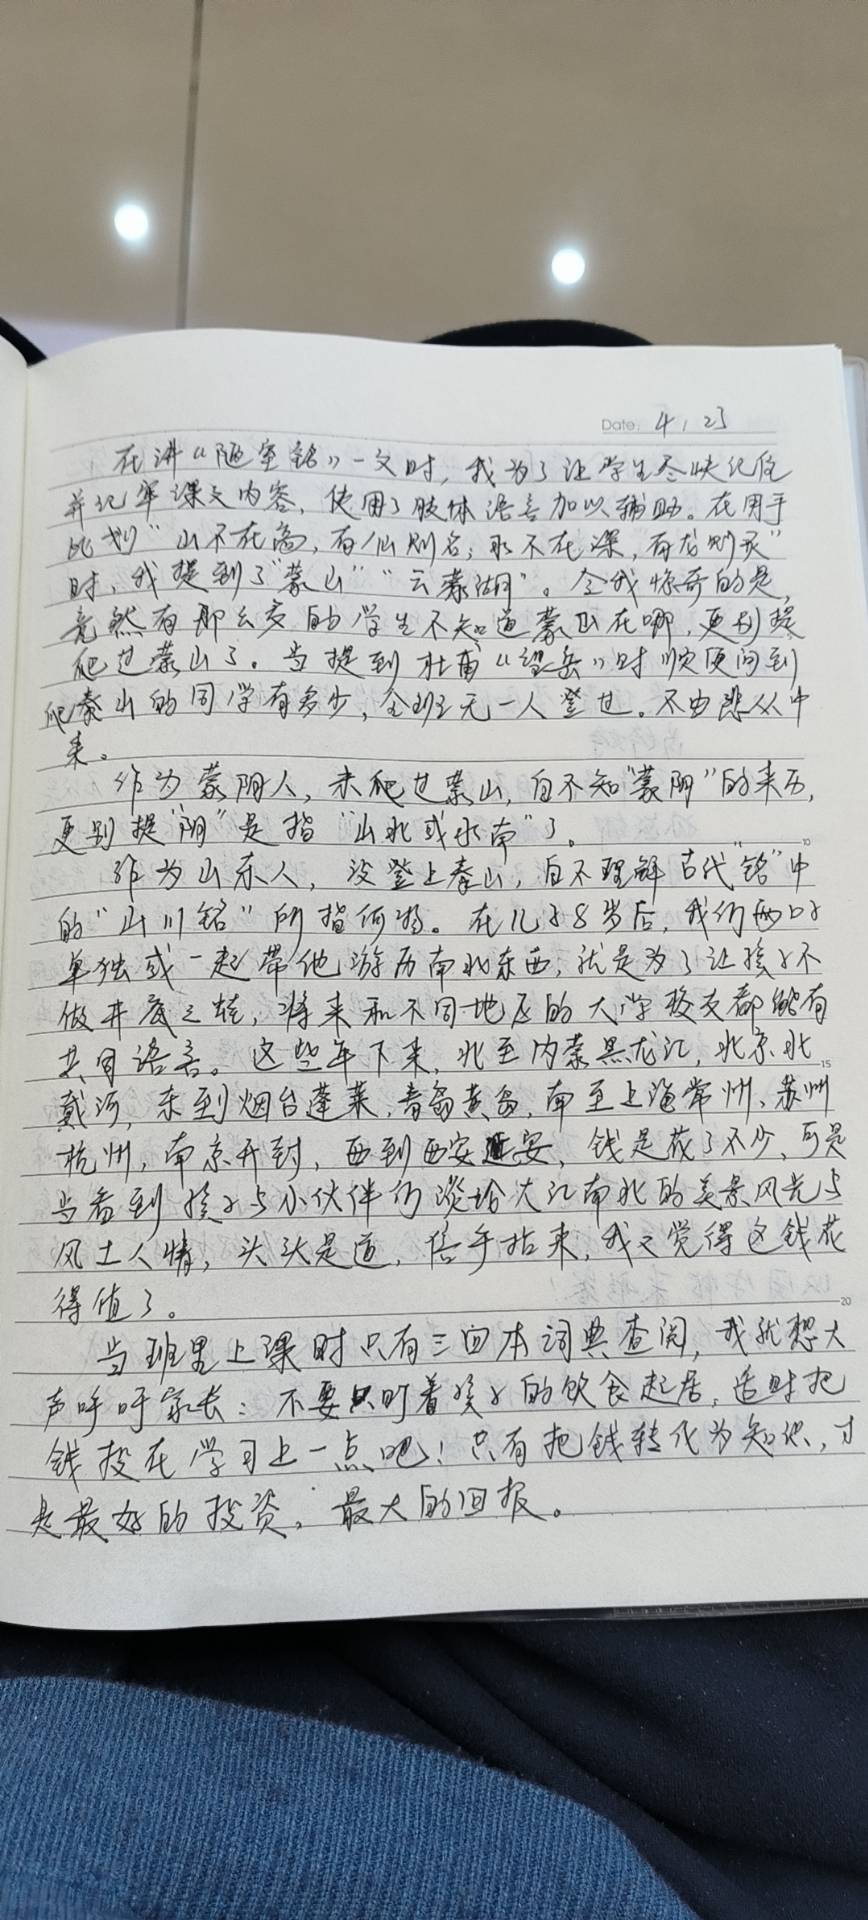 Date: 4.23
在讲《陋室铭》一文时，我为了让学生尽快记住
并记牢课文内容，使用了肢体语言加以辅助。在用手
比划"山不在高，有仙则名；水不在深，有龙则灵"
时，我提到了"蒙山""云蒙湖"。令我惊奇的是，
竟然有那么多的学生不知道蒙山在哪，更别提
爬过蒙山了。当提到杜甫《望岳》时顺便问到
爬泰山的同学有多少，全班无一人登过。不由悲从中
来。
作为蒙阴人，未爬过蒙山，自不知"蒙阴"的来历，
更别提"阴"是指"山北或水南"了。
作为山东人，没登上泰山，自不理解古代"铭"中
的"山川铭"所指何物。在儿子8岁后，我们两口子
单独或一起带他游历南北东西，就是为了让孩子不
做井底之蛙，将来和不同地区的大学校友都能有
共同语言。这些年下来，北至内蒙黑龙江，北京北
戴河，东到烟台蓬莱，青岛黄岛，南至上海常州、苏州
杭州，南京开封，西到西安延安，钱是花了不少，可是
当看到孩子与小伙伴们谈论大江南北的美景风光与
风土人情，头头是道，信手拈来，我又觉得这钱花
得值了。
当班里上课时只有三四本词典查阅，我就想大
声呼吁家长：不要只盯着孩子的饮食起居，适时把
钱投在学习上一点吧！只有把钱转化为知识，才
是最好的投资，最大的回报。
10
15
20